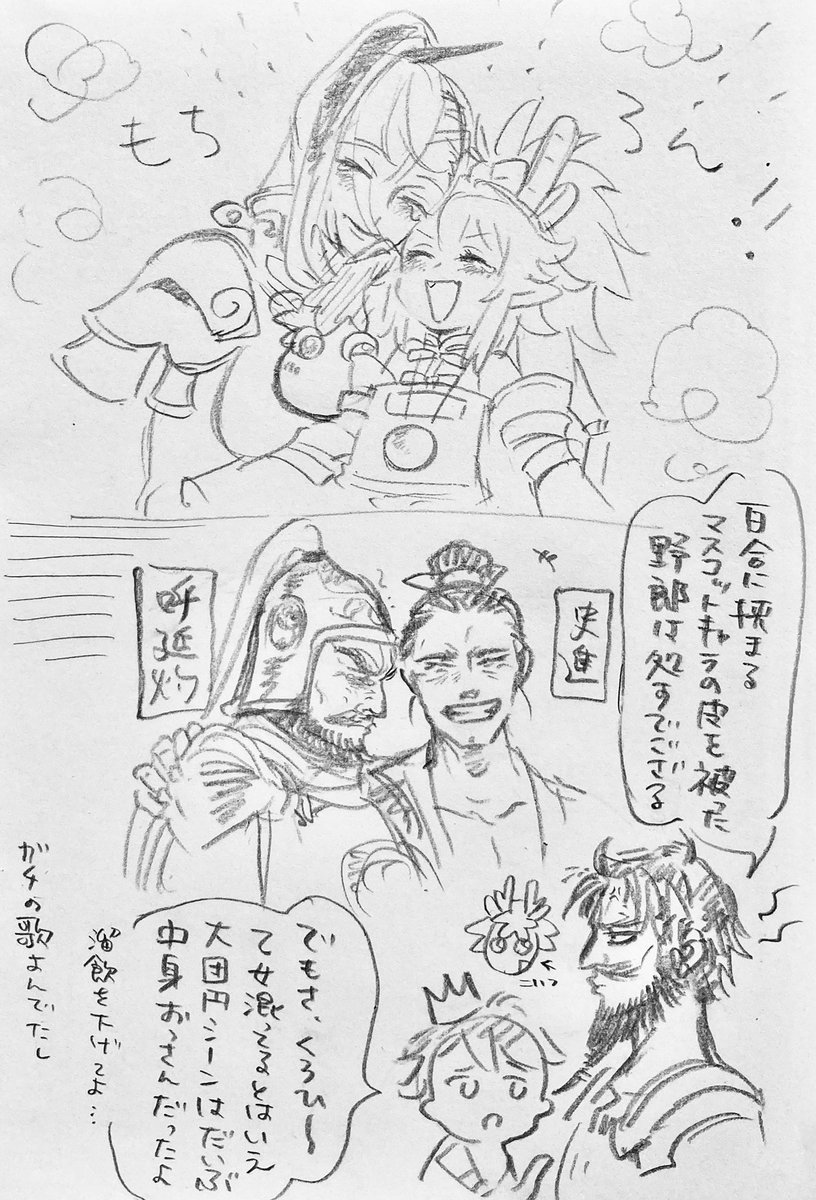 もちろん!!
百合に挟まる
マスコットキャラの皮を被った
野郎は処すでござる
史進
呼延灼
こいつ
でもさ、くろひー
乙女混ってるとはいえ
大団円シーンはだいぶ
中身おっさんだったよ
溜飲を下げてよ…
ガチの歌よんでたし